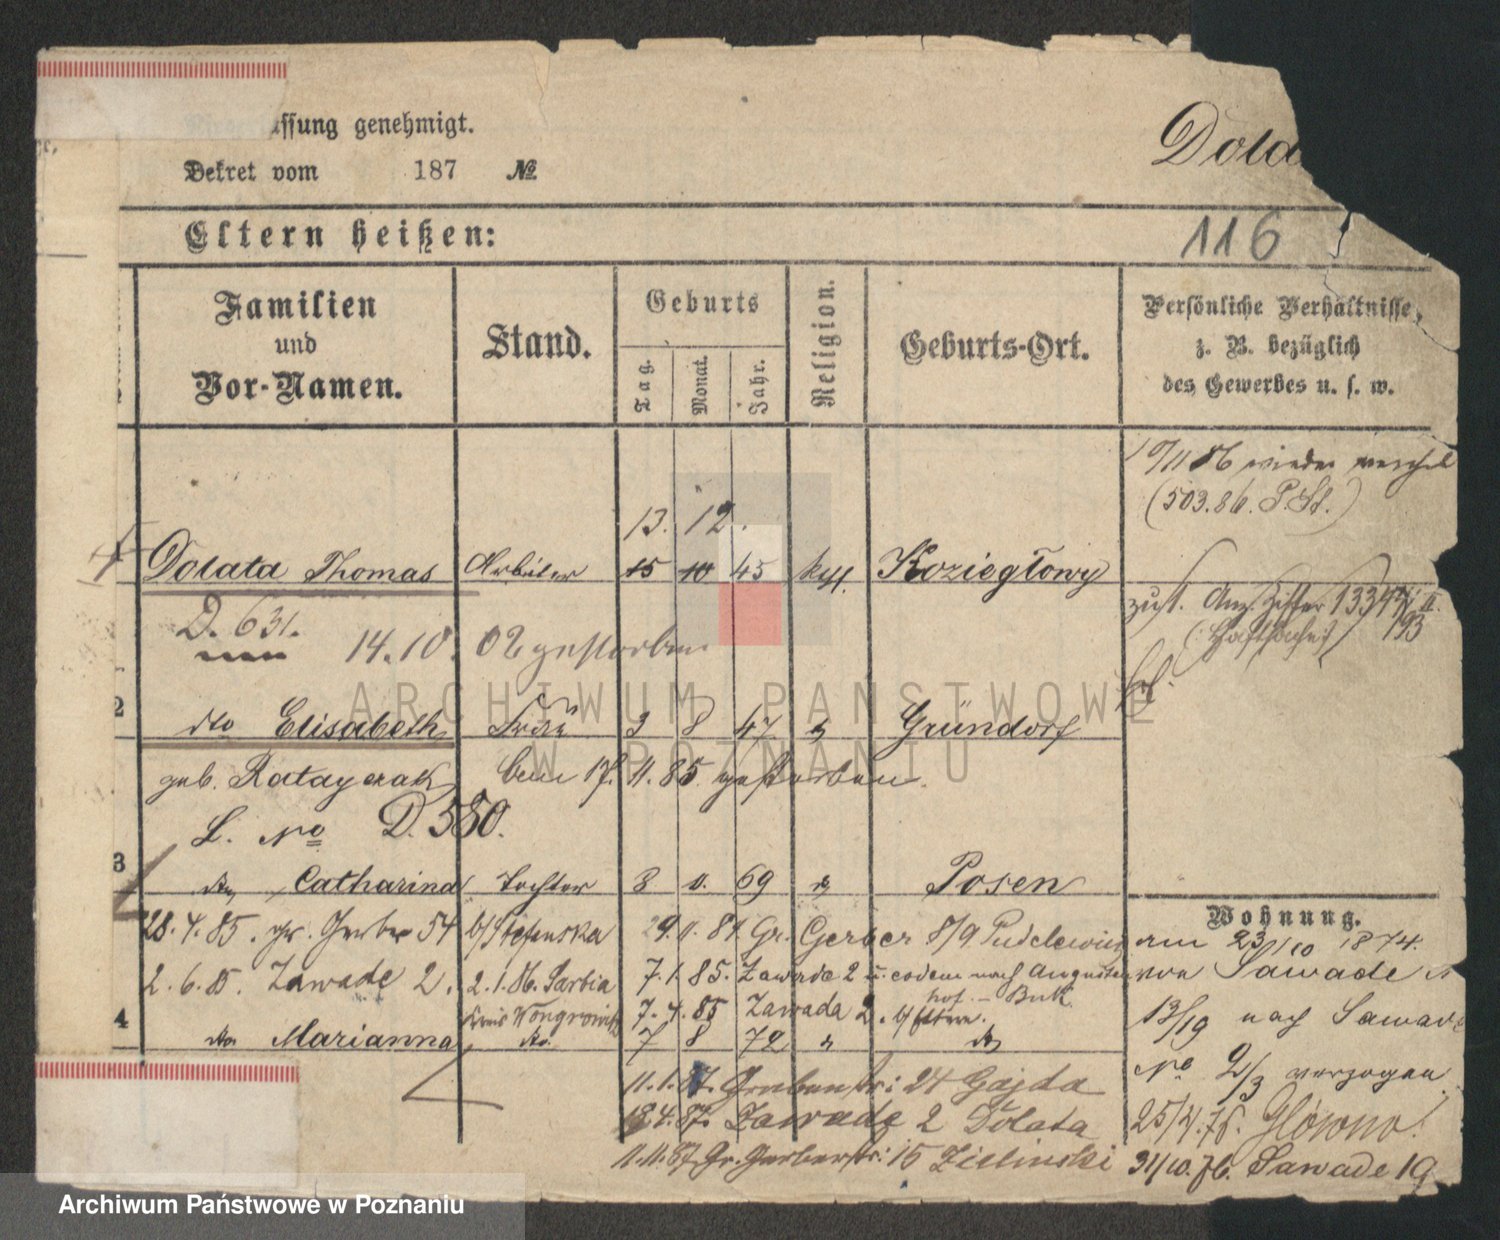 assung genehmigt.
Dekret vom 187 №
Dola
Eltern heißen:
116
Familien und Vor-Namen.
Stand.
Geburts
Tag.
Monat.
Jahr.
Religion.
Geburts-Ort.
Persönliche Verhältnisse,
z. B. bezüglich
des Gewerbes u. s. w.
10/11 86 wieder
(503.86. P.St.)
13. 12.
Dolata Thomas Arbeiter 15 10 45 kath. Koziegłowy
D. 631.
14.10. 02 gestorben
zust. Anz. Ziffer 1334 II.
93
2
dto Elisabeth Frau 3 8 47 Gründorf
geb. Ratayczak 17. 11. 85 gestorben.
L. No D. 380.
3
dto Catharina Tochter 3 11. 69 Posen
Wohnung.
28. 4. 85. gr. Gerber 54 b/Stefanska 29. 11. 81. Gr. Gerber 8/9 Pudelewicz
am 23/10 1874.
2. 6. 85. Zawade 2. 2. 1. 86. Sarbia 7. 1. 85. Zawade 2
von Sawade
Kreis Wongrowitz 7. 4. 85 Zawada 2. b/Eltern.
Buk
13/19 nach Sawade
4
dto Marianna dto. 7 8 72 dto
No 2/3 verzogen
11. 1. 87. Grabenstr: 24 Gajda
18. 4. 87. Zawade 2 Dolata
25/4. 75. Główno!
11. 11. 87. Gr. Gerberstr: 15 Zielinski
31/10. 76. Sawade 19
ARCHIWUM PAŃSTWOWE
W POZNANIU
Archiwum Państwowe w Poznaniu